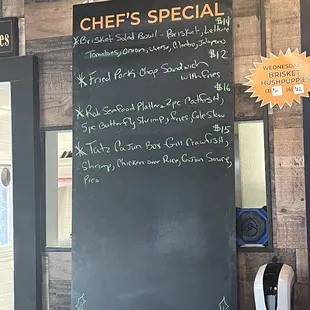 CHEF'S SPECIAL
$14
Brisket Salad Bowl - Brisket, Lettuce
Tomatoes, Onions, Cheese, Cilantro, Jalapenos
$12
Fried Pork Chop Sandwich
with fries
$16
Seafood Platter 2pc Catfish,
5pc Butterfly Shrimp, Fries, Coleslaw
$15
Cajun Box - Grill Crawfish,
Shrimp, Chicken over Rice, Cajun Sauce,
Pico
WEDNESDAY
BRISKET
HUSHPUPPIES